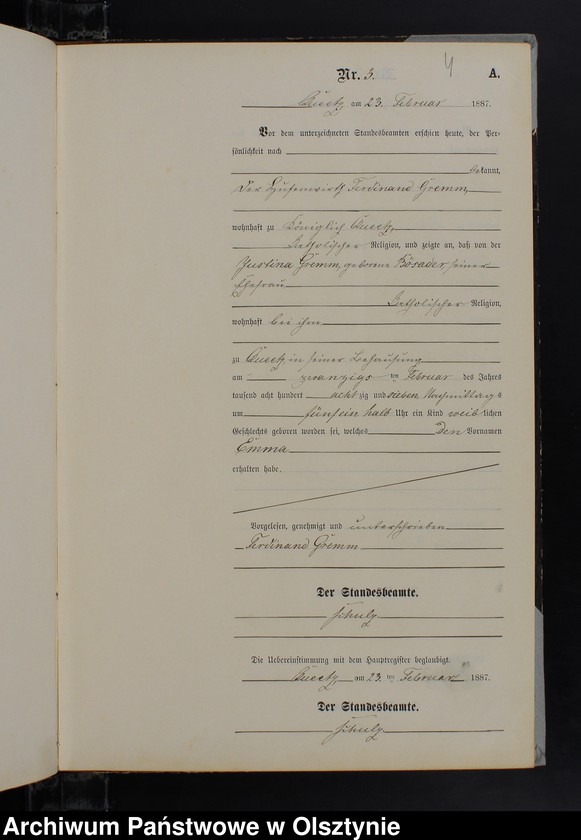 4
Nr. 3. A.
Queetz am 23. Februar 1887.
Vor dem unterzeichneten Standesbeamten erschien heute, der Per-
sönlichkeit nach
bekannt,
der Hufenwirth Ferdinand Gremm,
wohnhaft zu Königlich Queetz,
katholischer Religion, und zeigte an, daß von der
Justina Gremm, geborene Bösader, seiner
Ehefrau
katholischer Religion,
wohnhaft bei ihm
zu Queetz, in seiner Behausung
am zwanzigs ten Februar des Jahres
tausend acht hundert acht zig und sieben Nachmittag s
um fünf ein halb Uhr ein Kind weib lichen
Geschlechts geboren worden sei, welches den Vornamen
Emma
erhalten habe.
Vorgelesen, genehmigt und unterschrieben
Ferdinand Gremm
Der Standesbeamte.
Schulz
Die Uebereinstimmung mit dem Hauptregister beglaubigt.
Queetz am 23. ten Februar 1887.
Der Standesbeamte.
Schulz
Archiwum Państwowe w Olsztynie